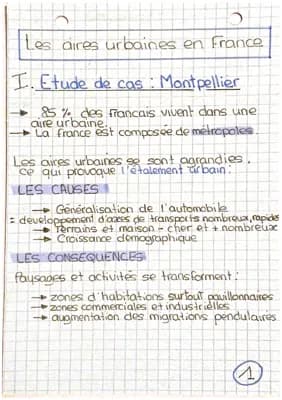 Les aires urbaines en France
I. Etude de cas : Montpellier
→ 85 % des francais vivent dans une
aire urbaine.
→ La france est composée de métropoles.
Les aires urbaines se sont agrandies,
ce qui provoque l'étalement urbain:
LES CAUSES
→ Généralisation de l'automobile
= developpement d'axes de transports nombreux, rapides
→ Terrains et maison - cher et + nombreux
→ Croissance démographique
LES CONSEQUENCES
Paysages et activités se transforment:
→ zones d'habitations surtout pavillonnaires
→ zones commerciales et industrielles
→ augmentation des migrations pendulaires
1